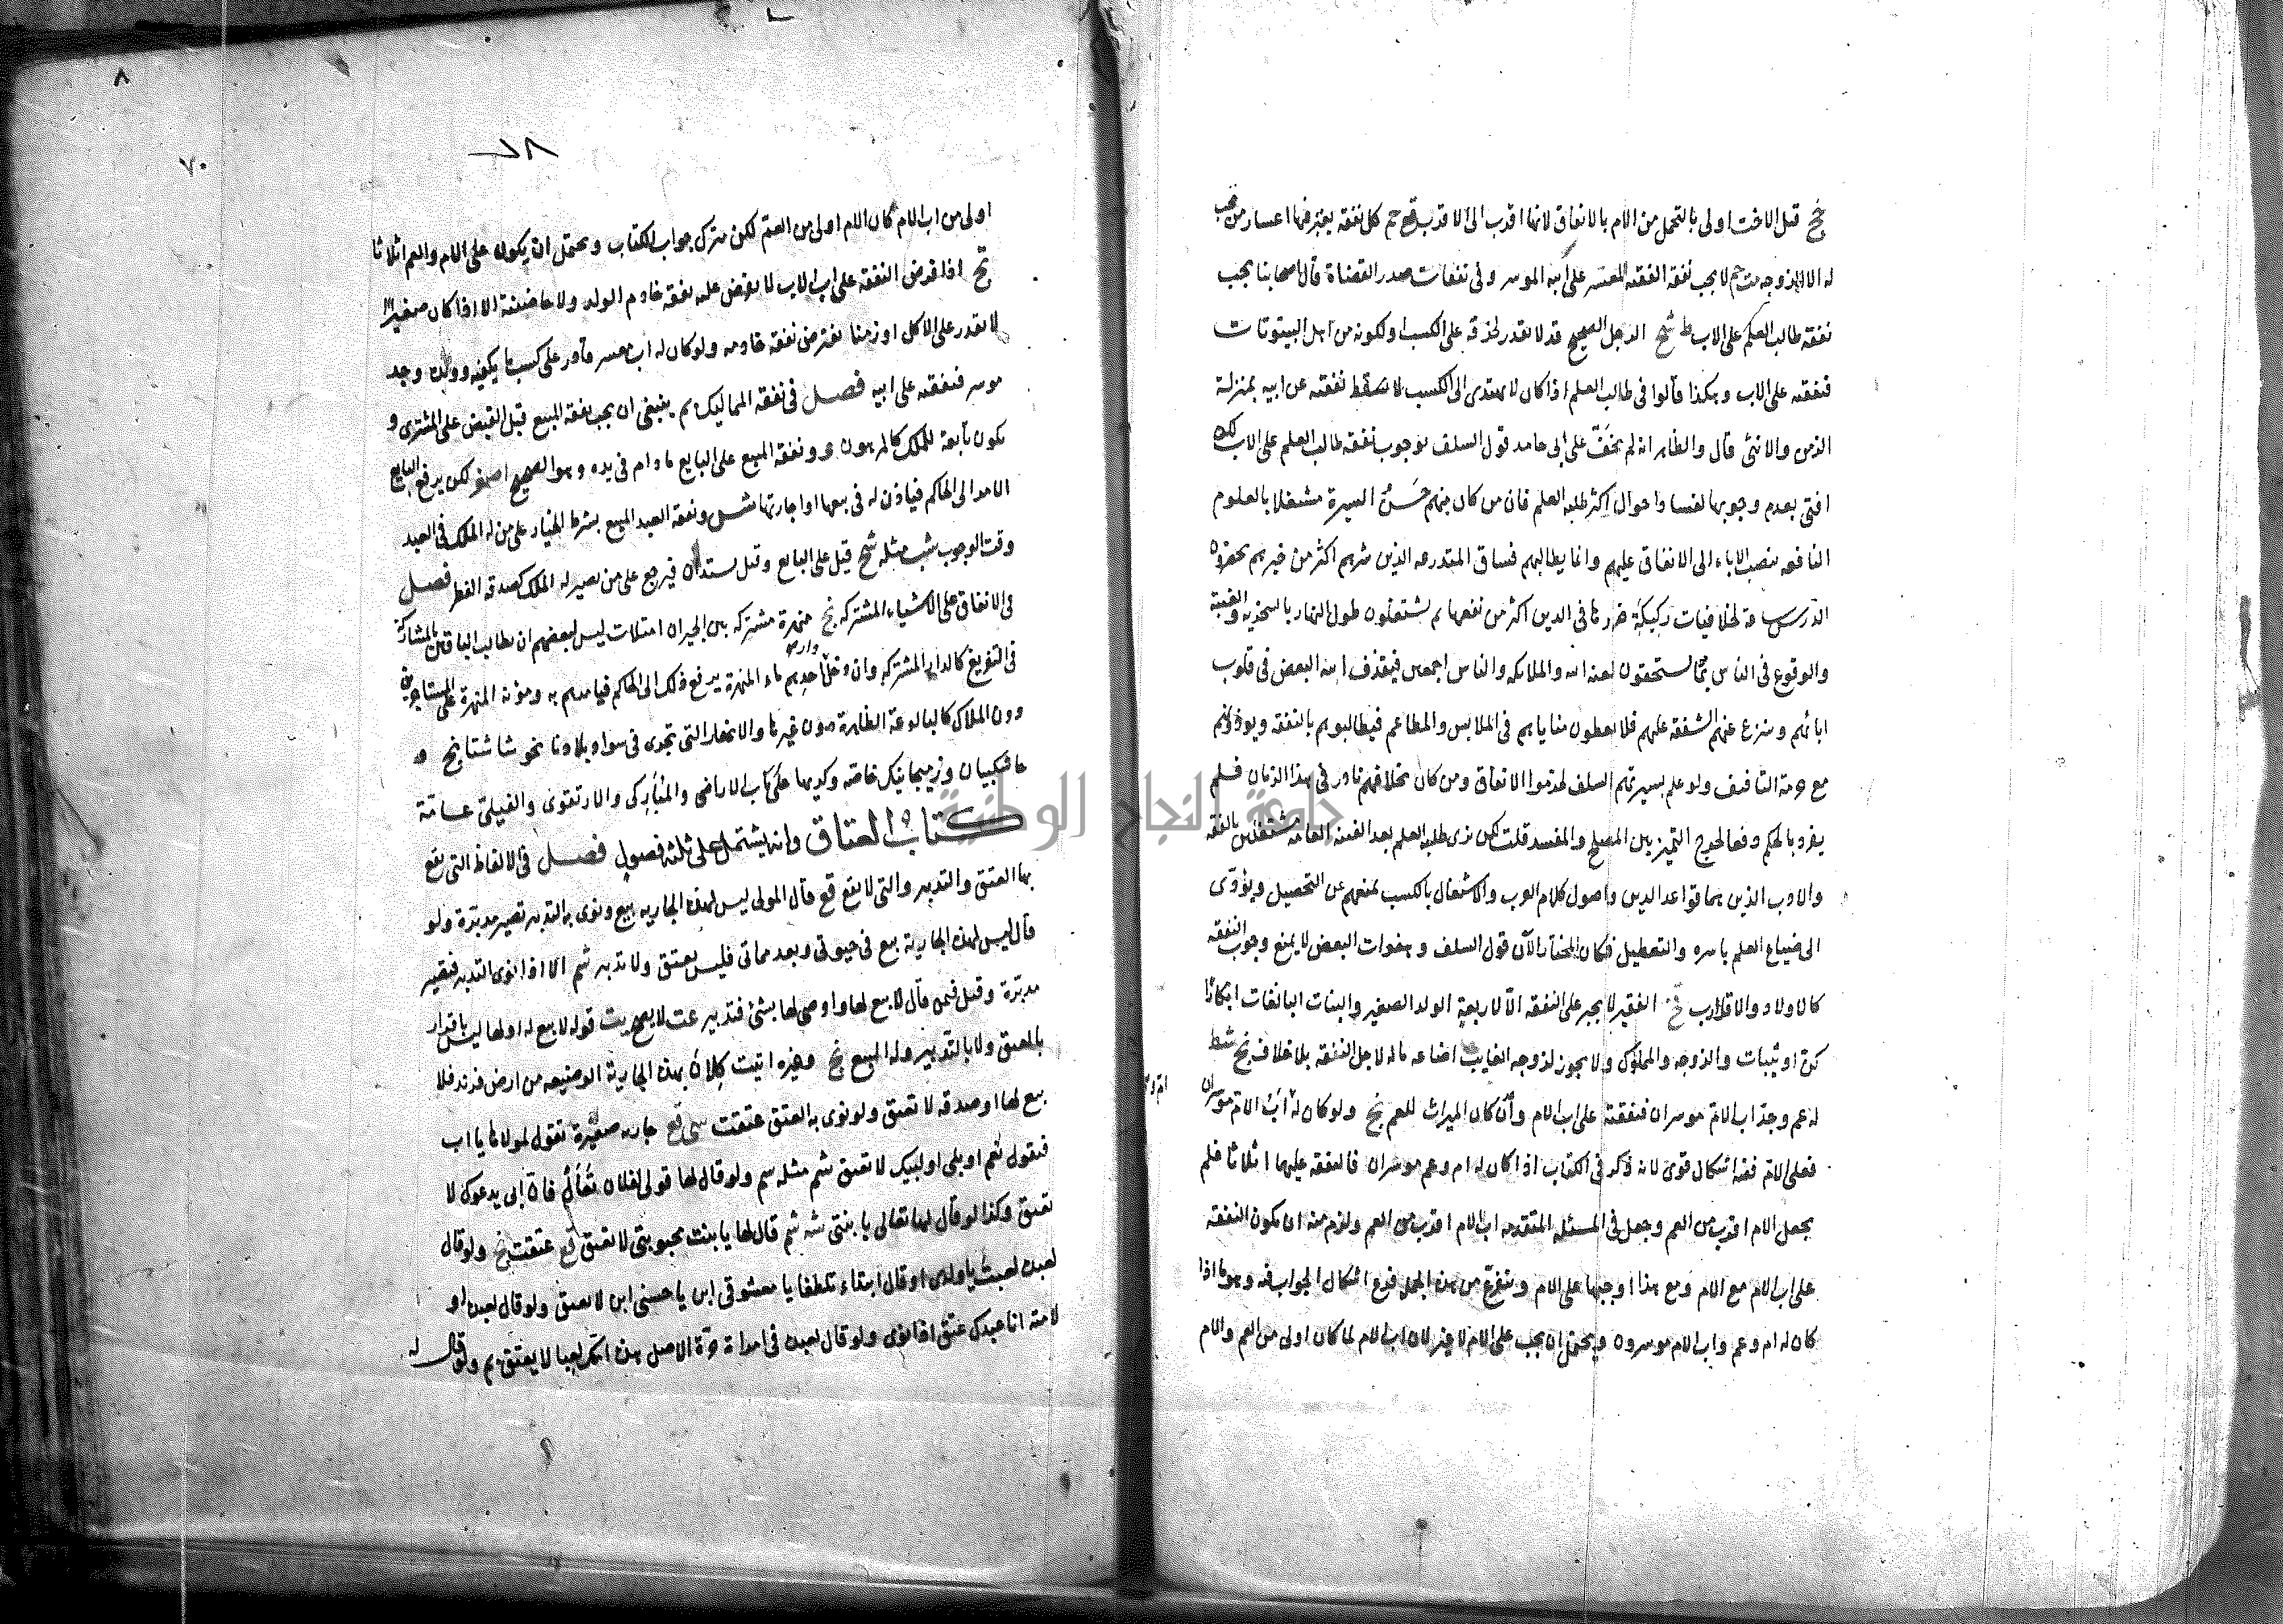 قيل الاخت اولى بالتحمل من الام بالانفاق لانها اقرب الى الاقرب كل نفقة يعتبر فيها اعسار من تجب
له الا الزوجة لا يجب نفقة الفقيه المعسر على ابيه الموسر وفى نفقات صدر القضاة قال اصحابنا يجب
نفقة طالب العلم على الاب ط شح الرجل الصحيح قد لا يقدر لخرقه على الكسب او لكونه من اهل البيوتات
فنفقته على الاب وهكذا قالوا فى طالب العلم اذا كان لا يهتدى الى الكسب لا تسقط نفقته عن ابيه بمنزلة
الزمن والانثى قال والظاهر انه لم يخف على ابى حامد قول السلف بوجوب نفقة طالب العلم على الاب لكنه
افتى بعدم وجوبها لفساد احوال اكثر طلبة العلم فان من كان منهم حسن السيرة مشتغلا بالعلوم
النافعة يتصب الاباء الى الانفاق عليهم وانما يطالبهم فساق المتدرعه الذين شرهم اكثر من خيرهم يحضرون
الدرس لخلافيات ركيكة ضررها فى الدين اكثر من نفعها ثم يشتغلون طول النهار بالسخرية والغيبة
والوقوع فى الناس مما يستحقون لعنة الله والملائكة والناس اجمعين فيقذف الله البغض فى قلوب
ابائهم وينزع عنهم الشفقة عليهم فلا يعطون مناياهم فى الملابس والمطاعم فيطالبوهم بالنفقة ويوذونهم
مع حرمة التأفيف ولو علم بسيرتهم السلف لحرموا الانفاق ومن كان بخلافهم نادر فى هذا الزمان فلم
يفرد بالحكم دفعا لحرج التمييز بين المصلح والمفسد قلت لكن نرى طلبة العلم بعد الفتنة العامة مشتغلين بالفقه
والادب الذين هما قواعد الدين واصول كلام العرب والاشتغال بالكسب يمنعهم عن التحصيل ويؤدى
الى ضياع العلم باسره والتعطيل فكان المختار الآن قول السلف وهفوات البعض لا يمنع وجوب النفقة
كالاولاد والاقارب الفقير لا يجبر على النفقة الا لاربعة الولد الصغير والبنات البالغات ابكارا
كن او ثيبات والزوجة والمملوك ولا يجوز لزوجة الغايب اضاعة ماله لاجل النفقة بلا خلاف نج شط
له عم وجد اب الام موسران فنفقته على اب الام وان كان الميراث للعم نج ولو كان له اب الام موسران
فعلى الام ففيه اشكال قوى لانه ذكر فى الكتاب اذا كان له ام وعم موسران فالنفقة عليهما اثلاثا فلم
يجعل الام اقرب من العم وجعل فى المسئلة المتقدمة اب الام اقرب من العم ولزم منه ان يكون النفقة
على اب الام مع الام ومع هذا اوجبها على الام ويتفرع من هذه الجملة فرع اشكال الجواب فيه وهو ما اذا
كان له ام وعم واب الام موسرون ويحتمل ان يجب على الام لا غير لان اب الام لما كان اولى من العم والام
٧٨
٧٠
٨
اولى من اب الام كان الام اولى من العم لكن يترك جواب الكتاب ويحتمل ان يكون على الام والعم اثلاثا
اذا فرض النفقة على اب الاب لا يفرض عليه نفقة خادم الولد ولا حاضنته الا اذا كان صغيرا
لا يقدر على الاكل او زمنا يفترض نفقة خادمه ولو كان له اب معسر قادر على كسب ما يكفيه وولده وجد
موسر فنفقته على ابيه فصل فى نفقة المماليك ينبغى ان يجب نفقة المبيع قبل القبض على المشترى و
يكون تابعة للملك كالمرهون ونفقة المبيع على البايع ما دام فى يده وهو الصحيح لكن يرفع البايع
الامر الى الحاكم فياذن له فى بيعها او اجارتها ونفقة العبد المبيع بشرط الخيار على من له الملك فى العبد
وقت الوجوب مثله شح قيل على البايع وقيل يستدان فيرجع على من يصير له الملك كصدقة الفطر فصل
فى الانفاق على الاشياء المشتركة نج منهرة مشتركة بين الجيران امتلأت ليس لبعضهم ان يطالب الباقين بالمشاركة
فى التفريغ كالدار المشتركة وان دخل دار احدهم ماء المنهرة يرفع ذلك الى الحاكم فيامرهم به ومؤنة المنهرة على المستاجرين
دون الملاك كالبالوعة الظاهرة دون غيرها والانهار التى تجرى فى سواد بلادنا نحو شاشتابخ و
خاصة وكريها على ارباب الاراضى والارتقوى والفيلق عامة
كتاب العتاق وانه يشتمل على ثلثة فصول فصل فى الالفاظ التى يقع
بها العتق والتدبير والتى لا يقع قع قال المولى ليس لهذه الجارية بيع ونوى به التدبير تصير مدبرة ولو
قال ليس لهذه الجارية بيع فى حيوتى وبعد مماتى فليس بعتق ولا تدبير شم الا اذا نوى التدبير فيصير
مدبرة وقيل فيمن قال لا بيع لها واوصى لها بشئ فتدبير عت لا يصح قوله لا بيع له او لها ليس باقرار
بالعتق ولا بالتدبير وله البيع نج وغيره اتيت كلان بهذه الجارية الوصيفة من ارض فرند فلا
بيع لها او صدقة لا تعتق ولو نوى به العتق عتقت قع جارية صغيرة تقول لمولاها يا اب
فيقول نعم او بلى او لبيك لا تعتق شم مثله سم ولو قال لها قولى لفلان تعالى فان ابى يدعوك لا
تعتق وكذا لو قال لها تعالى يا بنتى شه شم قال لها يا بنت محبوبتى لا تعتق قع عتقت نج ولو قال
لعبده لعبت يا ولدى او قال ابتداء تلطفا يا معشوقى ابن يا حسنى ابن لا يعتق ولو قال لعبده او
لامته انا عبدك عتق اذا نوى ولو قال لعبده فى امراة حرة الاصل هذه امك لعبا لا يعتق ولو قال له
جامعة النجاح الوطنية